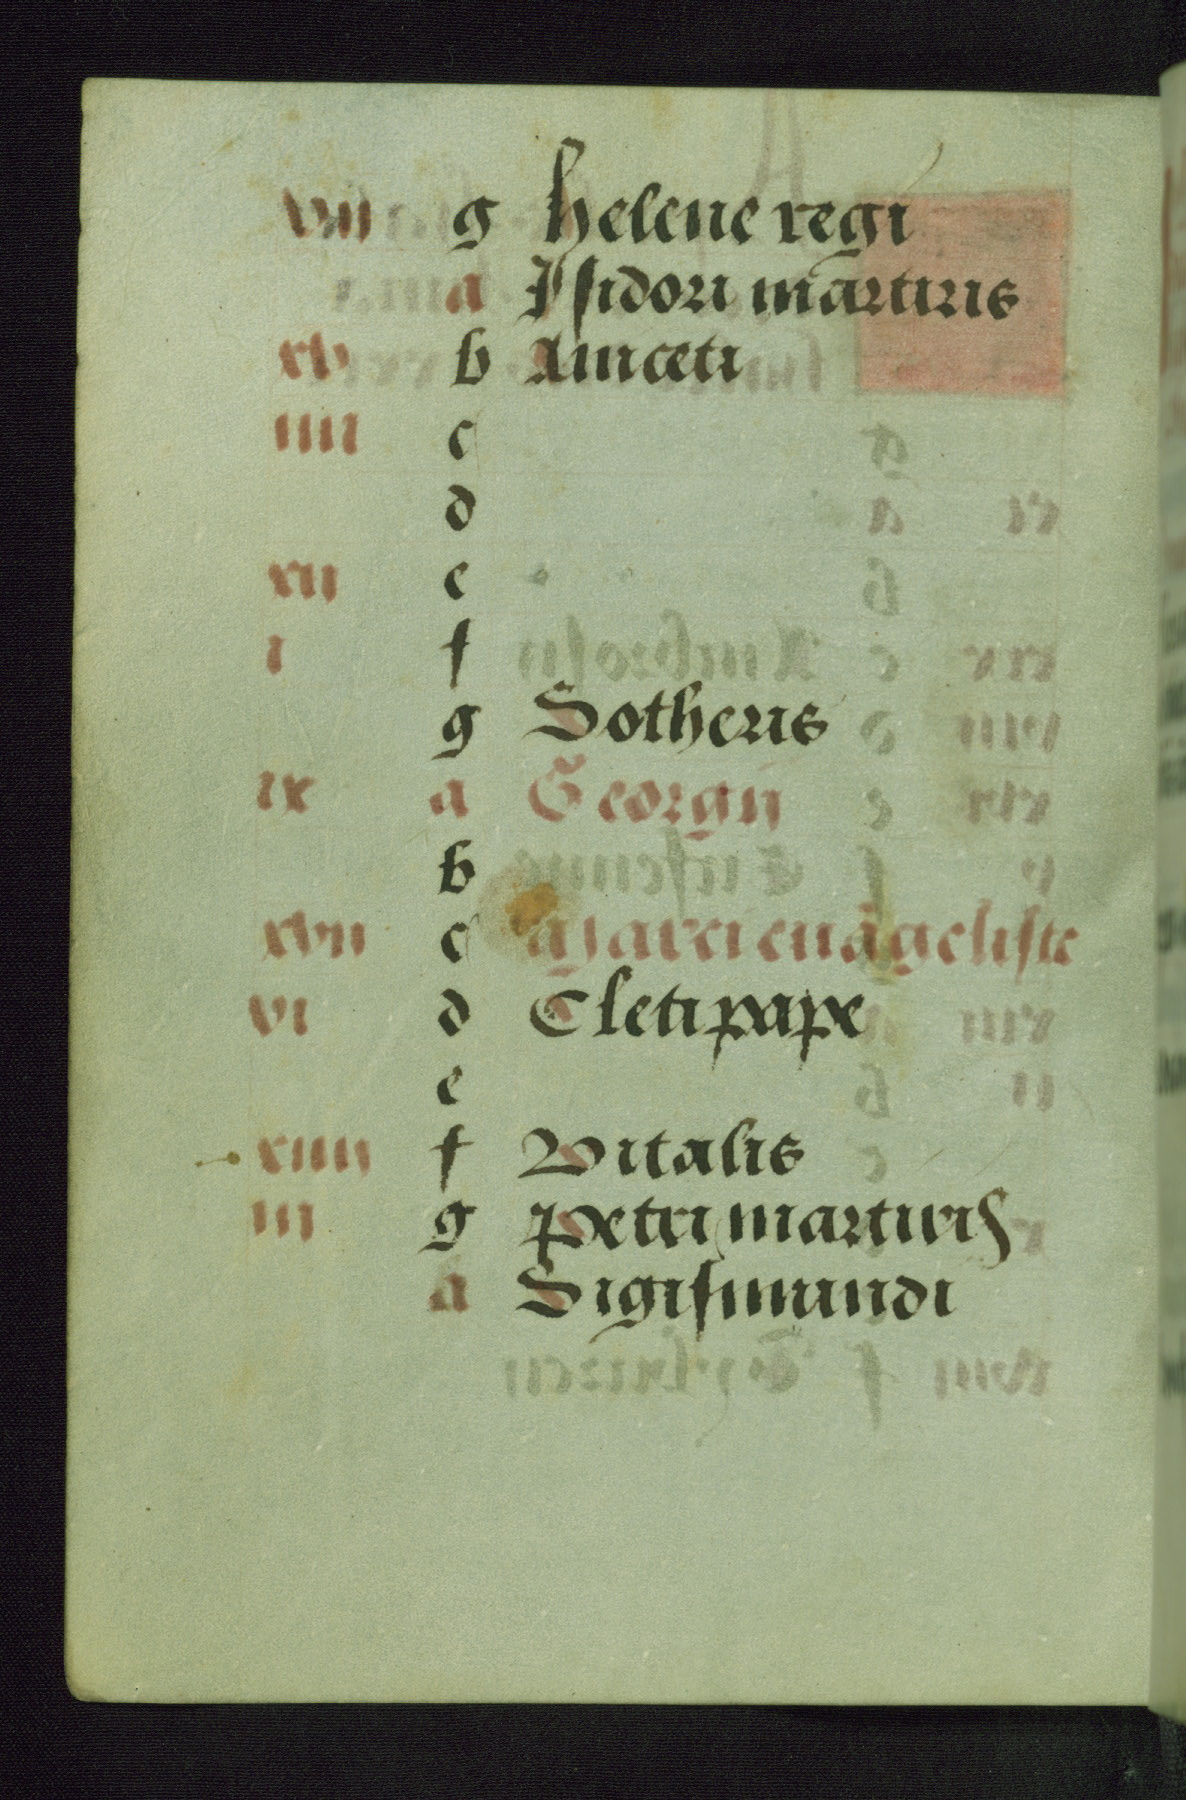 viii g helene regi
a Isidori martiris
xv b Aniceti
iiii c
d
xii e
i f
g Sotheris
ix a Georgii
b
xvii c Marci euāgeliste
vi d Cleti pape
e
xiiii f Vitalis
iii g Petri martiris
a Sigismundi